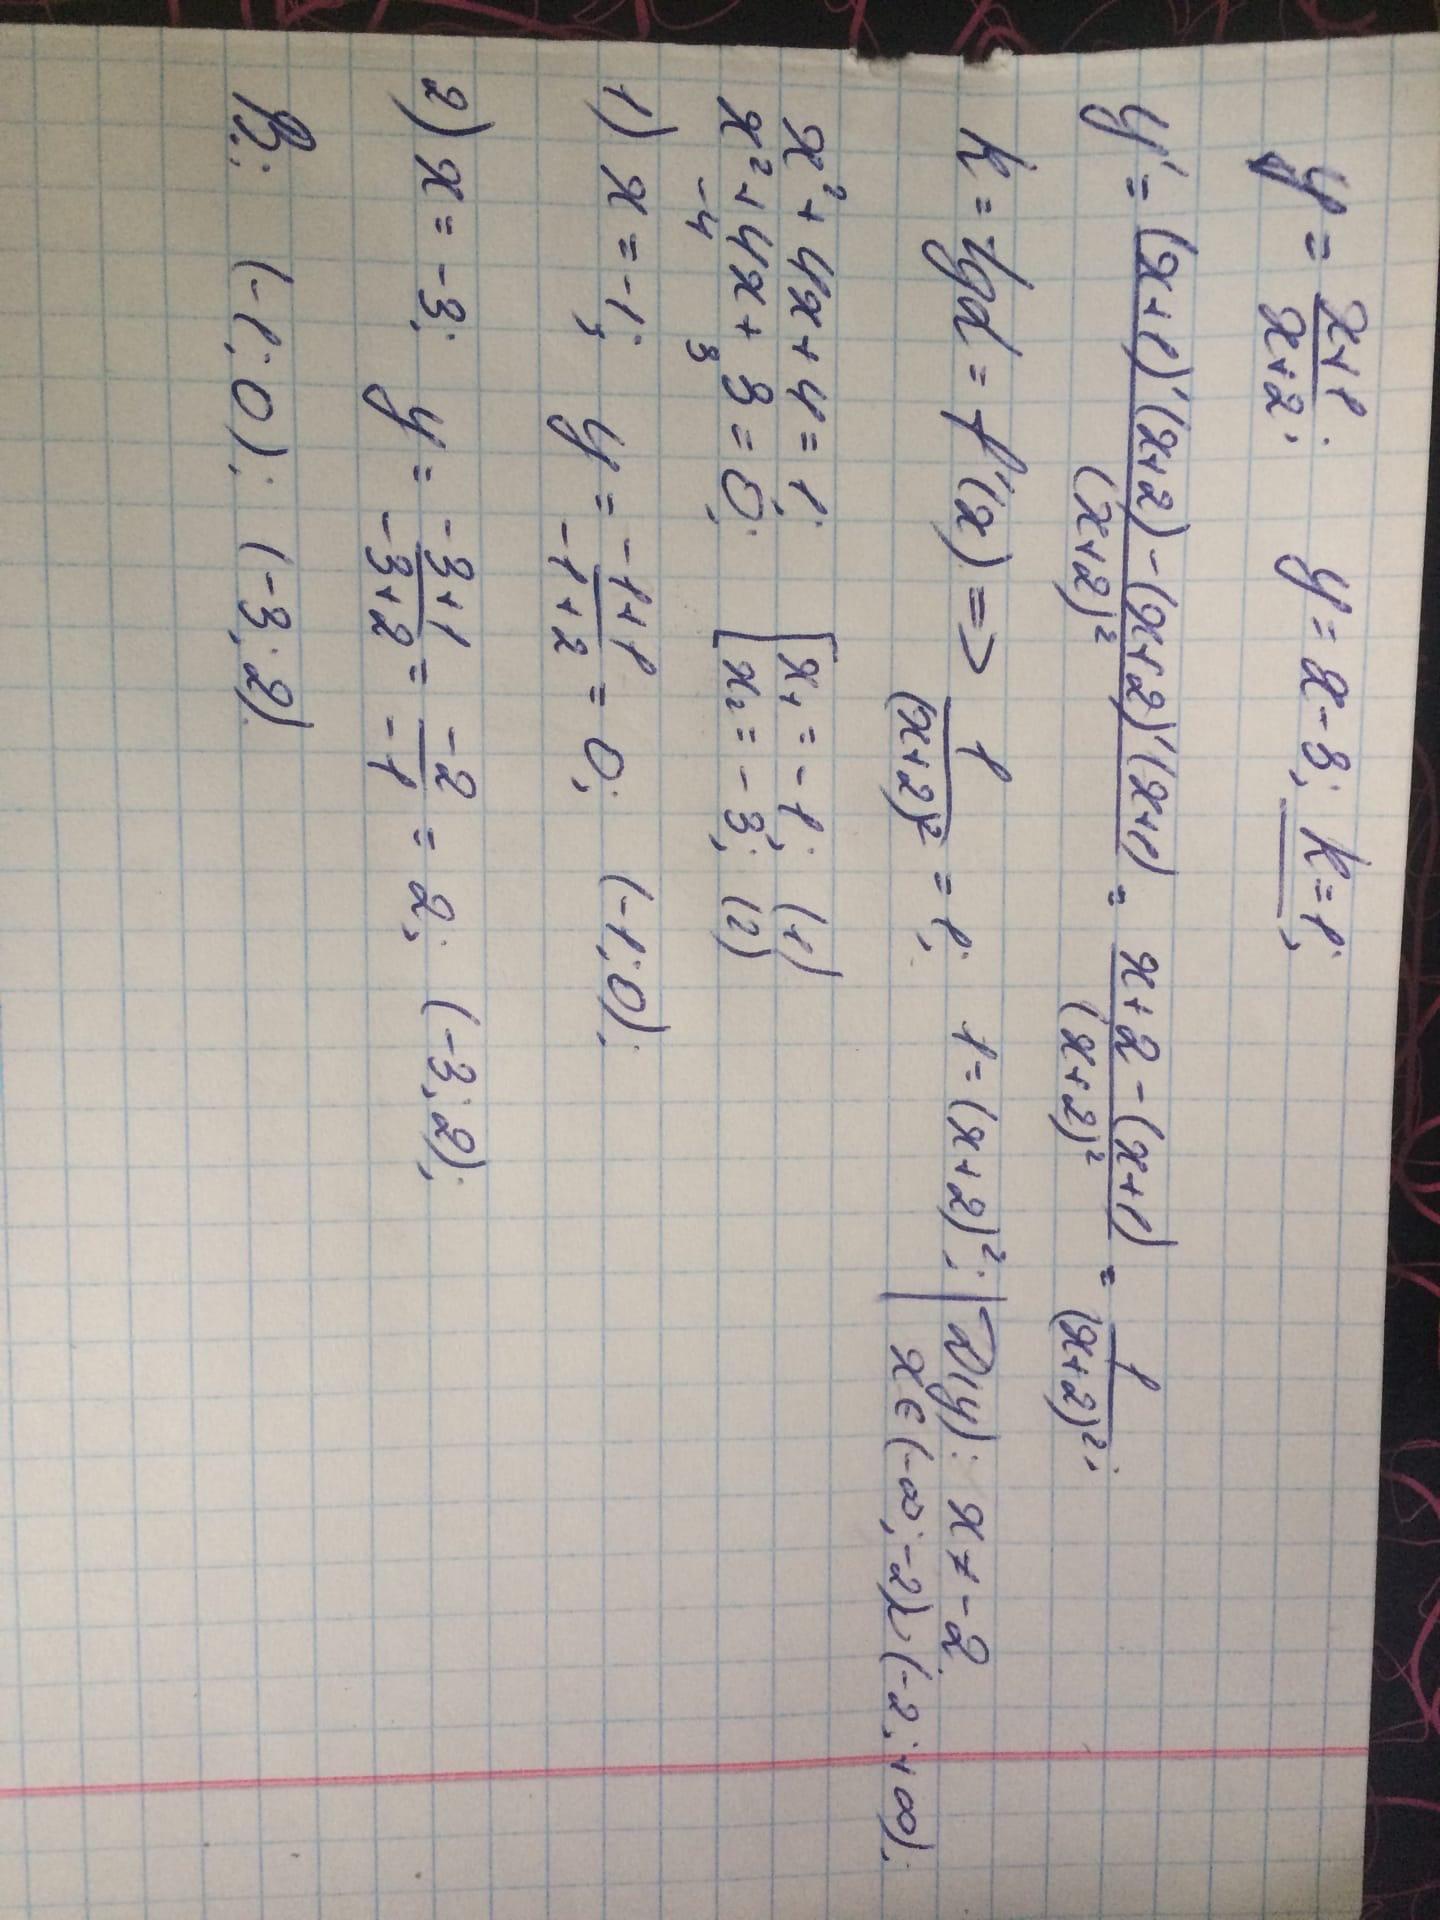 y = (x+1)/(x+2); y = x-3; k=1;
y' = ((x+1)'(x+2)-(x+2)'(x+1))/(x+2)² = (x+2-(x+1))/(x+2)² = 1/(x+2)²;
k = tgα = f'(x) => 1/(x+2)² = 1; 1=(x+2)²; | D(y): x ≠ -2
x∈(-∞;-2)∪(-2;+∞);
x²+4x+4=1;
x²+4x+3=0; [x₁=-1; (1)
-4 3 [x₂=-3; (2)
1) x=-1; y = (-1+1)/(-1+2) = 0; (-1;0);
2) x=-3; y = (-3+1)/(-3+2) = -2/-1 = 2; (-3;2);
В: (-1;0); (-3;2).